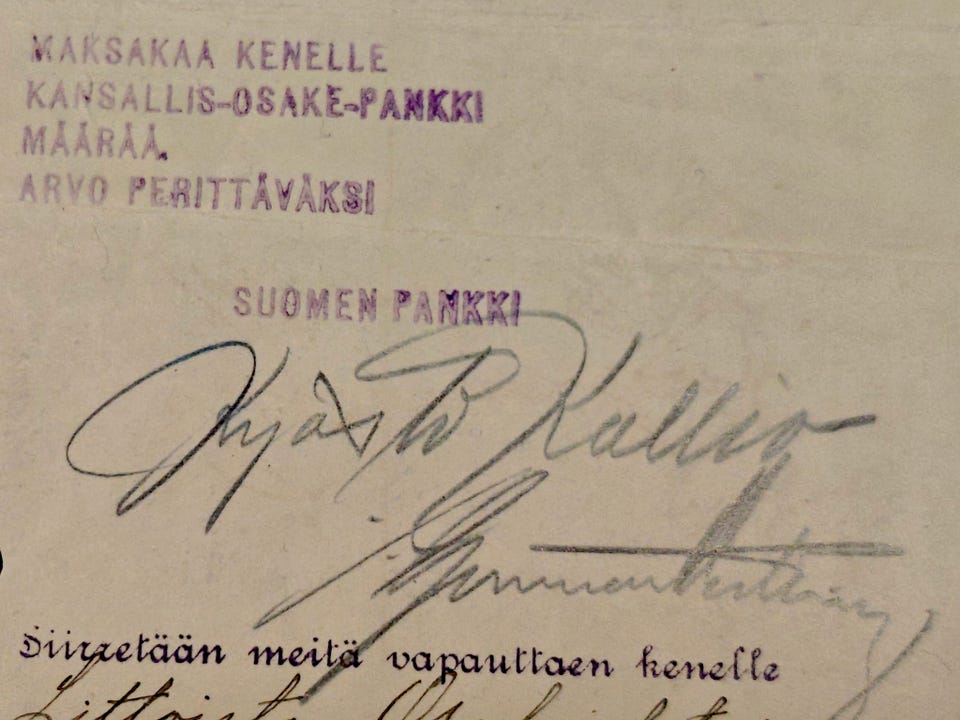 MAKSAKAA KENELLE
KANSALLIS-OSAKE-PANKKI
MÄÄRÄÄ.
ARVO PERITTÄVÄKSI
SUOMEN PANKKI
Kyösti Kallio
Siirretään meitä vapauttaen kenelle